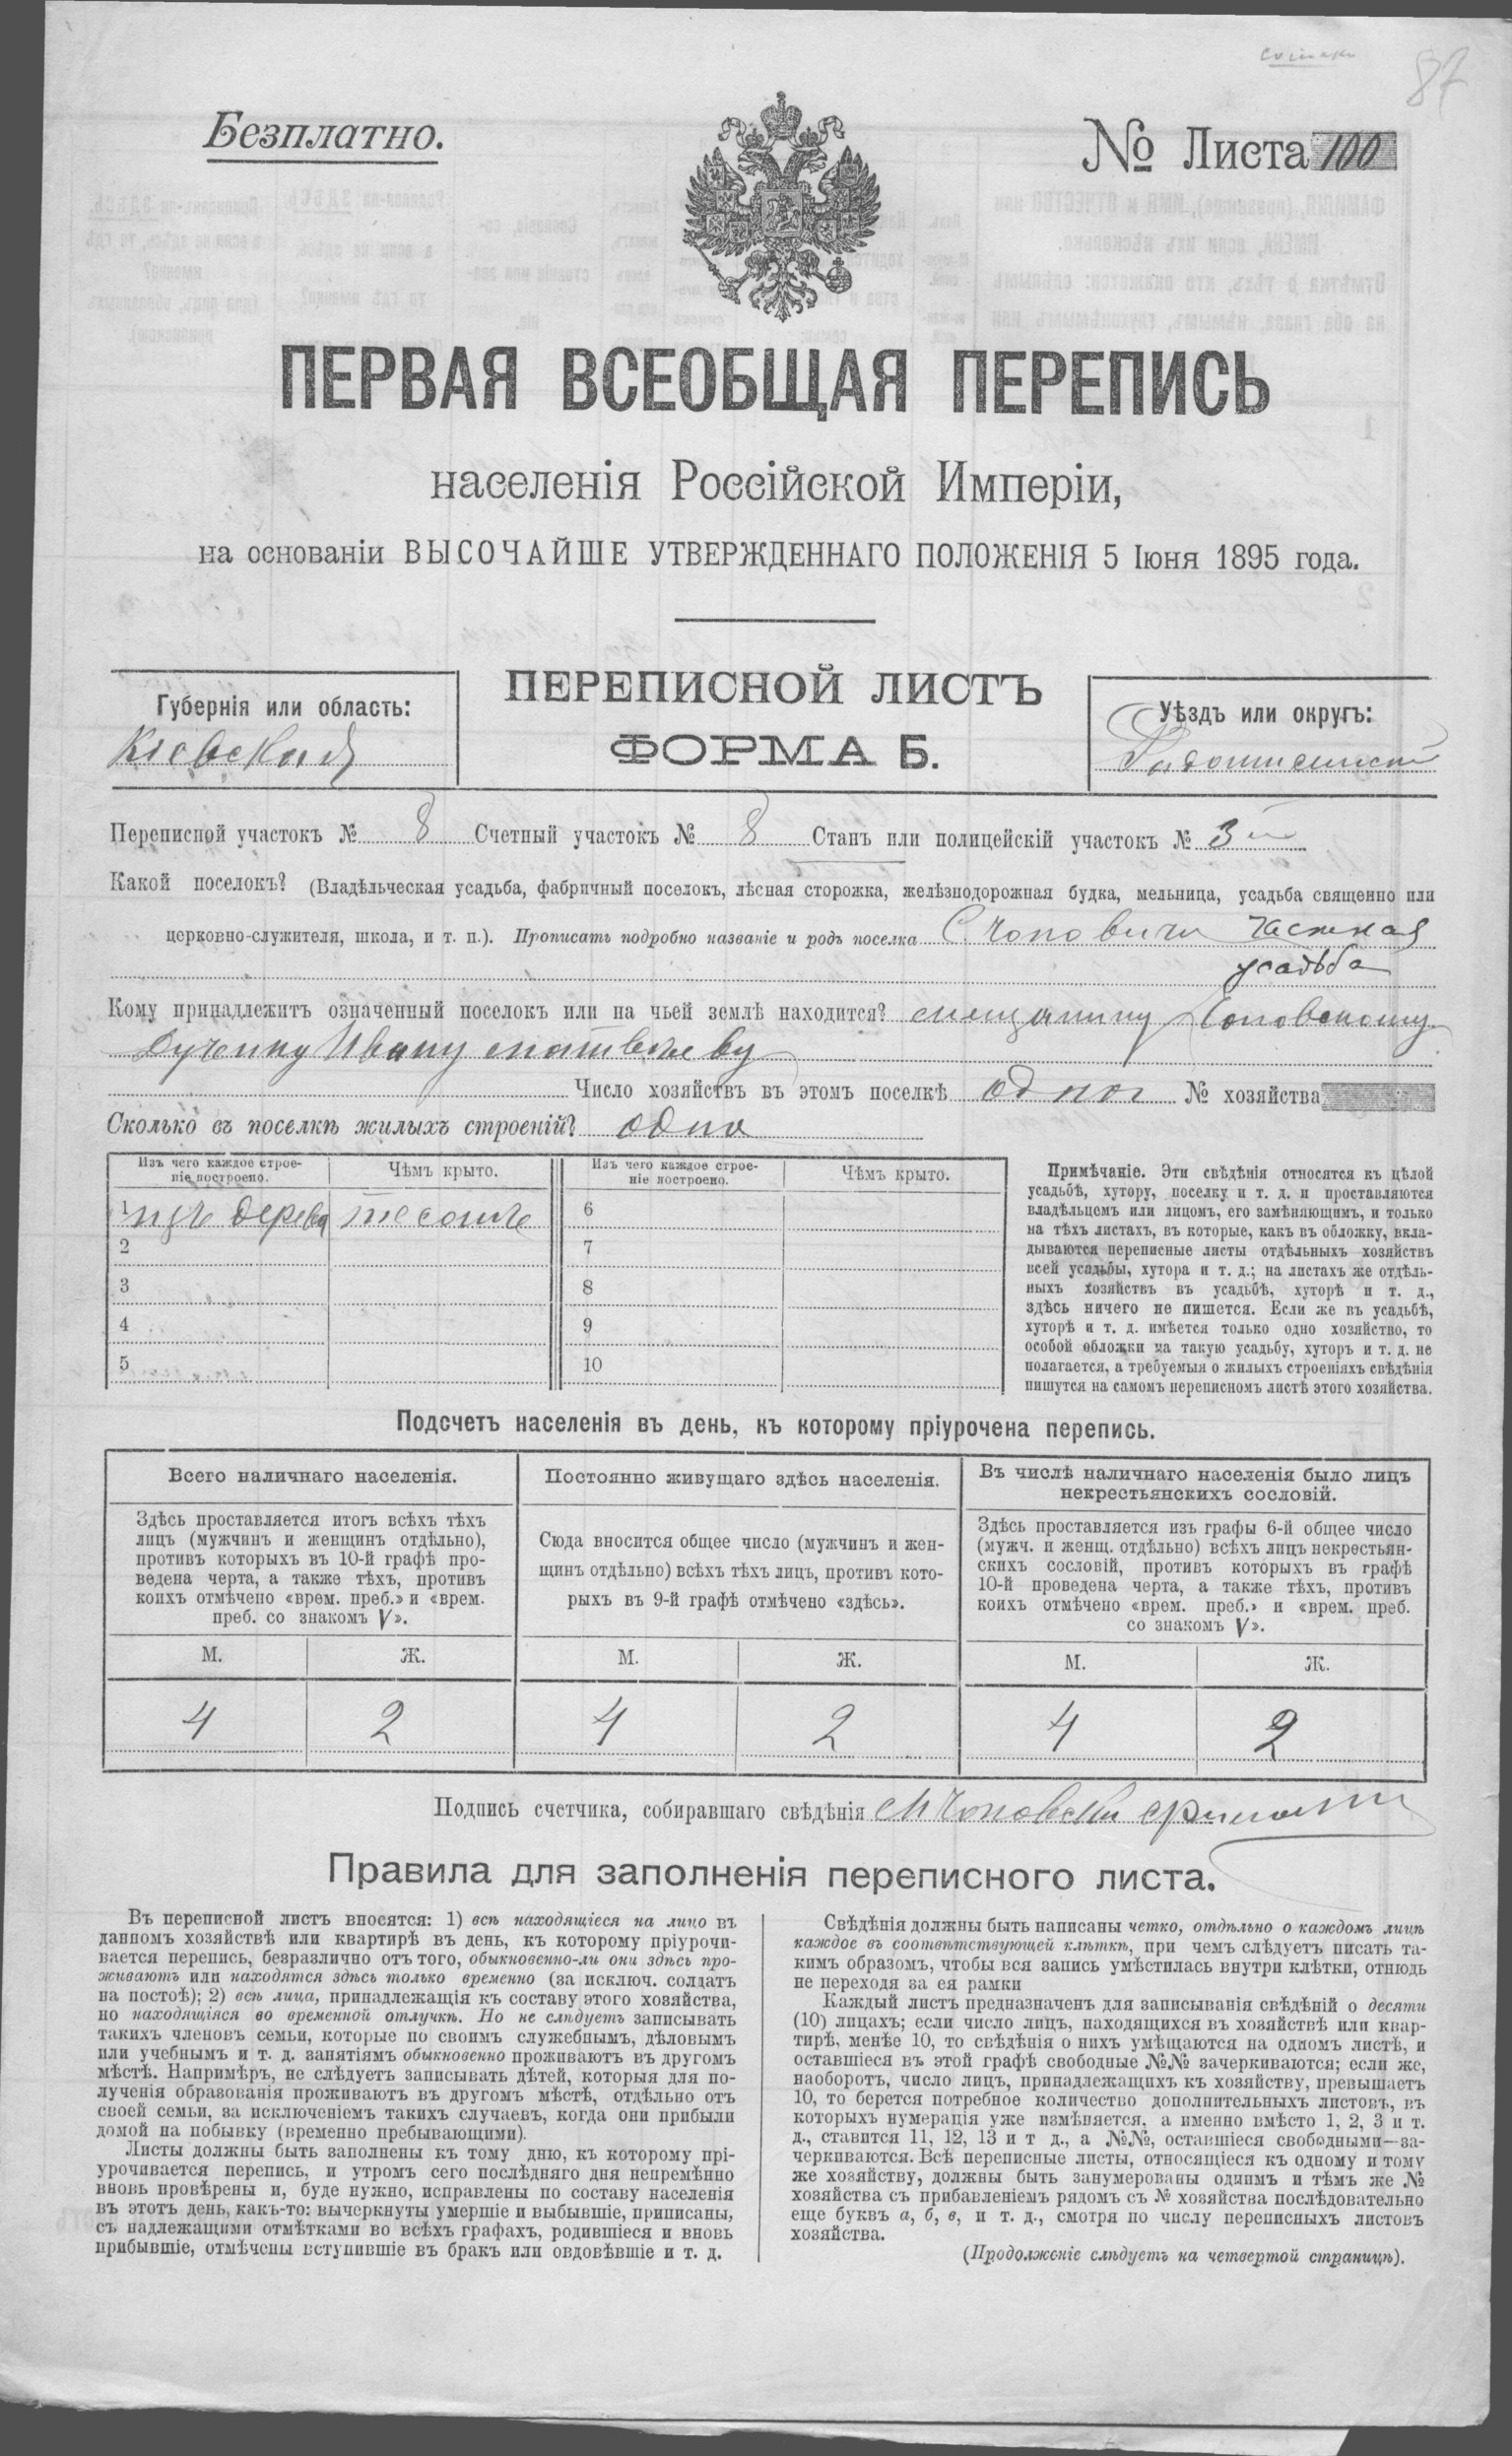 87
Безплатно.
№ Листа 100
ПЕРВАЯ ВСЕОБЩАЯ ПЕРЕПИСЬ
населенія Россійской Имперіи,
на основаніи ВЫСОЧАЙШЕ УТВЕРЖДЕННАГО ПОЛОЖЕНІЯ 5 Іюня 1895 года.
Губернія или область:
Кіевская
ПЕРЕПИСНОЙ ЛИСТЪ
ФОРМА Б.
Уѣздъ или округъ:
Переписной участокъ № 8 Счетный участокъ № 8 Станъ или полицейскій участокъ № 3
Какой поселокъ? (Владѣльческая усадьба, фабричный поселокъ, лѣсная сторожка, желѣзнодорожная будка, мельница, усадьба священно или
церковно-служителя, школа, и т. п.). Прописать подробно названіе и родъ поселка С. Чоповичи частная
усадьба
Кому принадлежитъ означенный поселокъ или на чьей землѣ находится? мещанину Чоповскому
Ивану
Число хозяйствъ въ этомъ поселкѣ одно № хозяйства
Сколько въ поселкѣ жилыхъ строеній? одно
Изъ чего каждое строе-
ніе построено.
Чѣмъ крыто.
Изъ чего каждое строе-
ніе построено.
Чѣмъ крыто.
1 изъ дерева тесомъ 6
2 7
3 8
4 9
5 10
Примѣчаніе. Эти свѣдѣнія относятся къ цѣлой
усадьбѣ, хутору, поселку и т. д. и проставляются
владѣльцемъ или лицомъ, его замѣняющимъ, и только
на тѣхъ листахъ, въ которые, какъ въ обложку, вкла-
дываются переписные листы отдѣльныхъ хозяйствъ
всей усадьбы, хутора и т. д.; на листахъ же отдѣль-
ныхъ хозяйствъ въ усадьбѣ, хуторѣ и т. д.,
здѣсь ничего не пишется. Если же въ усадьбѣ,
хуторѣ и т. д. имѣется только одно хозяйство, то
особой обложки на такую усадьбу, хуторъ и т. д. не
полагается, а требуемыя о жилыхъ строеніяхъ свѣдѣнія
пишутся на самомъ переписномъ листѣ этого хозяйства.
Подсчетъ населенія въ день, къ которому пріурочена перепись.
Всего наличнаго населенія.
Здѣсь проставляется итогъ всѣхъ тѣхъ
лицъ (мужчинъ и женщинъ отдѣльно),
противъ которыхъ въ 10-й графѣ про-
ведена черта, а также тѣхъ, противъ
коихъ отмѣчено «врем. преб.» и «врем.
преб. со знакомъ V».
Постоянно живущаго здѣсь населенія.
Сюда вносится общее число (мужчинъ и жен-
щинъ отдѣльно) всѣхъ тѣхъ лицъ, противъ кото-
рыхъ въ 9-й графѣ отмѣчено «здѣсь».
Въ числѣ наличнаго населенія было лицъ
некрестьянскихъ сословій.
Здѣсь проставляется изъ графы 6-й общее число
(мужч. и женщ. отдѣльно) всѣхъ лицъ некрестьян-
скихъ сословій, противъ которыхъ въ графѣ
10-й проведена черта, а также тѣхъ, противъ
коихъ отмѣчено «врем. преб.» и «врем. преб.
со знакомъ V».
М. Ж. М. Ж. М. Ж.
4 2 4 2 4 2
Подпись счетчика, собиравшаго свѣдѣнія
Правила для заполненія переписного листа.
Въ переписной листъ вносятся: 1) всѣ находящіеся на лицо въ
данномъ хозяйствѣ или квартирѣ въ день, къ которому пріурочи-
вается перепись, безразлично отъ того, обыкновенно-ли они здѣсь про-
живаютъ или находятся здѣсь только временно (за исключ. солдатъ
на постоѣ); 2) всѣ лица, принадлежащія къ составу этого хозяйства,
но находящіяся во временной отлучкѣ. Но не слѣдуетъ записывать
такихъ членовъ семьи, которые по своимъ служебнымъ, дѣловымъ
или учебнымъ и т. д. занятіямъ обыкновенно проживаютъ въ другомъ
мѣстѣ. Напримѣръ, не слѣдуетъ записывать дѣтей, которыя для по-
лученія образованія проживаютъ въ другомъ мѣстѣ, отдѣльно отъ
своей семьи, за исключеніемъ такихъ случаевъ, когда они прибыли
домой на побывку (временно пребывающими).
Листы должны быть заполнены къ тому дню, къ которому прі-
урочивается перепись, и утромъ сего послѣдняго дня непремѣнно
вновь провѣрены и, буде нужно, исправлены по составу населенія
въ этотъ день, какъ-то: вычеркнуты умершіе и выбывшіе, приписаны,
съ надлежащими отмѣтками во всѣхъ графахъ, родившіеся и вновь
прибывшіе, отмѣчены вступившіе въ бракъ или овдовѣвшіе и т. д.
Свѣдѣнія должны быть написаны четко, отдѣльно о каждомъ лицѣ
каждое въ соотвѣтствующей клѣткѣ, при чемъ слѣдуетъ писать та-
кимъ образомъ, чтобы вся запись умѣстилась внутри клѣтки, отнюдь
не переходя за ея рамки
Каждый листъ предназначенъ для записыванія свѣдѣній о десяти
(10) лицахъ; если число лицъ, находящихся въ хозяйствѣ или квар-
тирѣ, менѣе 10, то свѣдѣнія о нихъ умѣщаются на одномъ листѣ, и
оставшіеся въ этой графѣ свободные №№ зачеркиваются; если же,
наоборотъ, число лицъ, принадлежащихъ къ хозяйству, превышаетъ
10, то берется потребное количество дополнительныхъ листовъ, въ
которыхъ нумерація уже измѣняется, а именно вмѣсто 1, 2, 3 и т.
д., ставится 11, 12, 13 и т д., а №№, оставшіеся свободными—за-
черкиваются. Всѣ переписные листы, относящіеся къ одному и тому
же хозяйству, должны быть занумерованы однимъ и тѣмъ же №
хозяйства съ прибавленіемъ рядомъ съ № хозяйства послѣдовательно
еще буквъ а, б, в, и т. д., смотря по числу переписныхъ листовъ
хозяйства.
(Продолженіе слѣдуетъ на четвертой страницѣ).